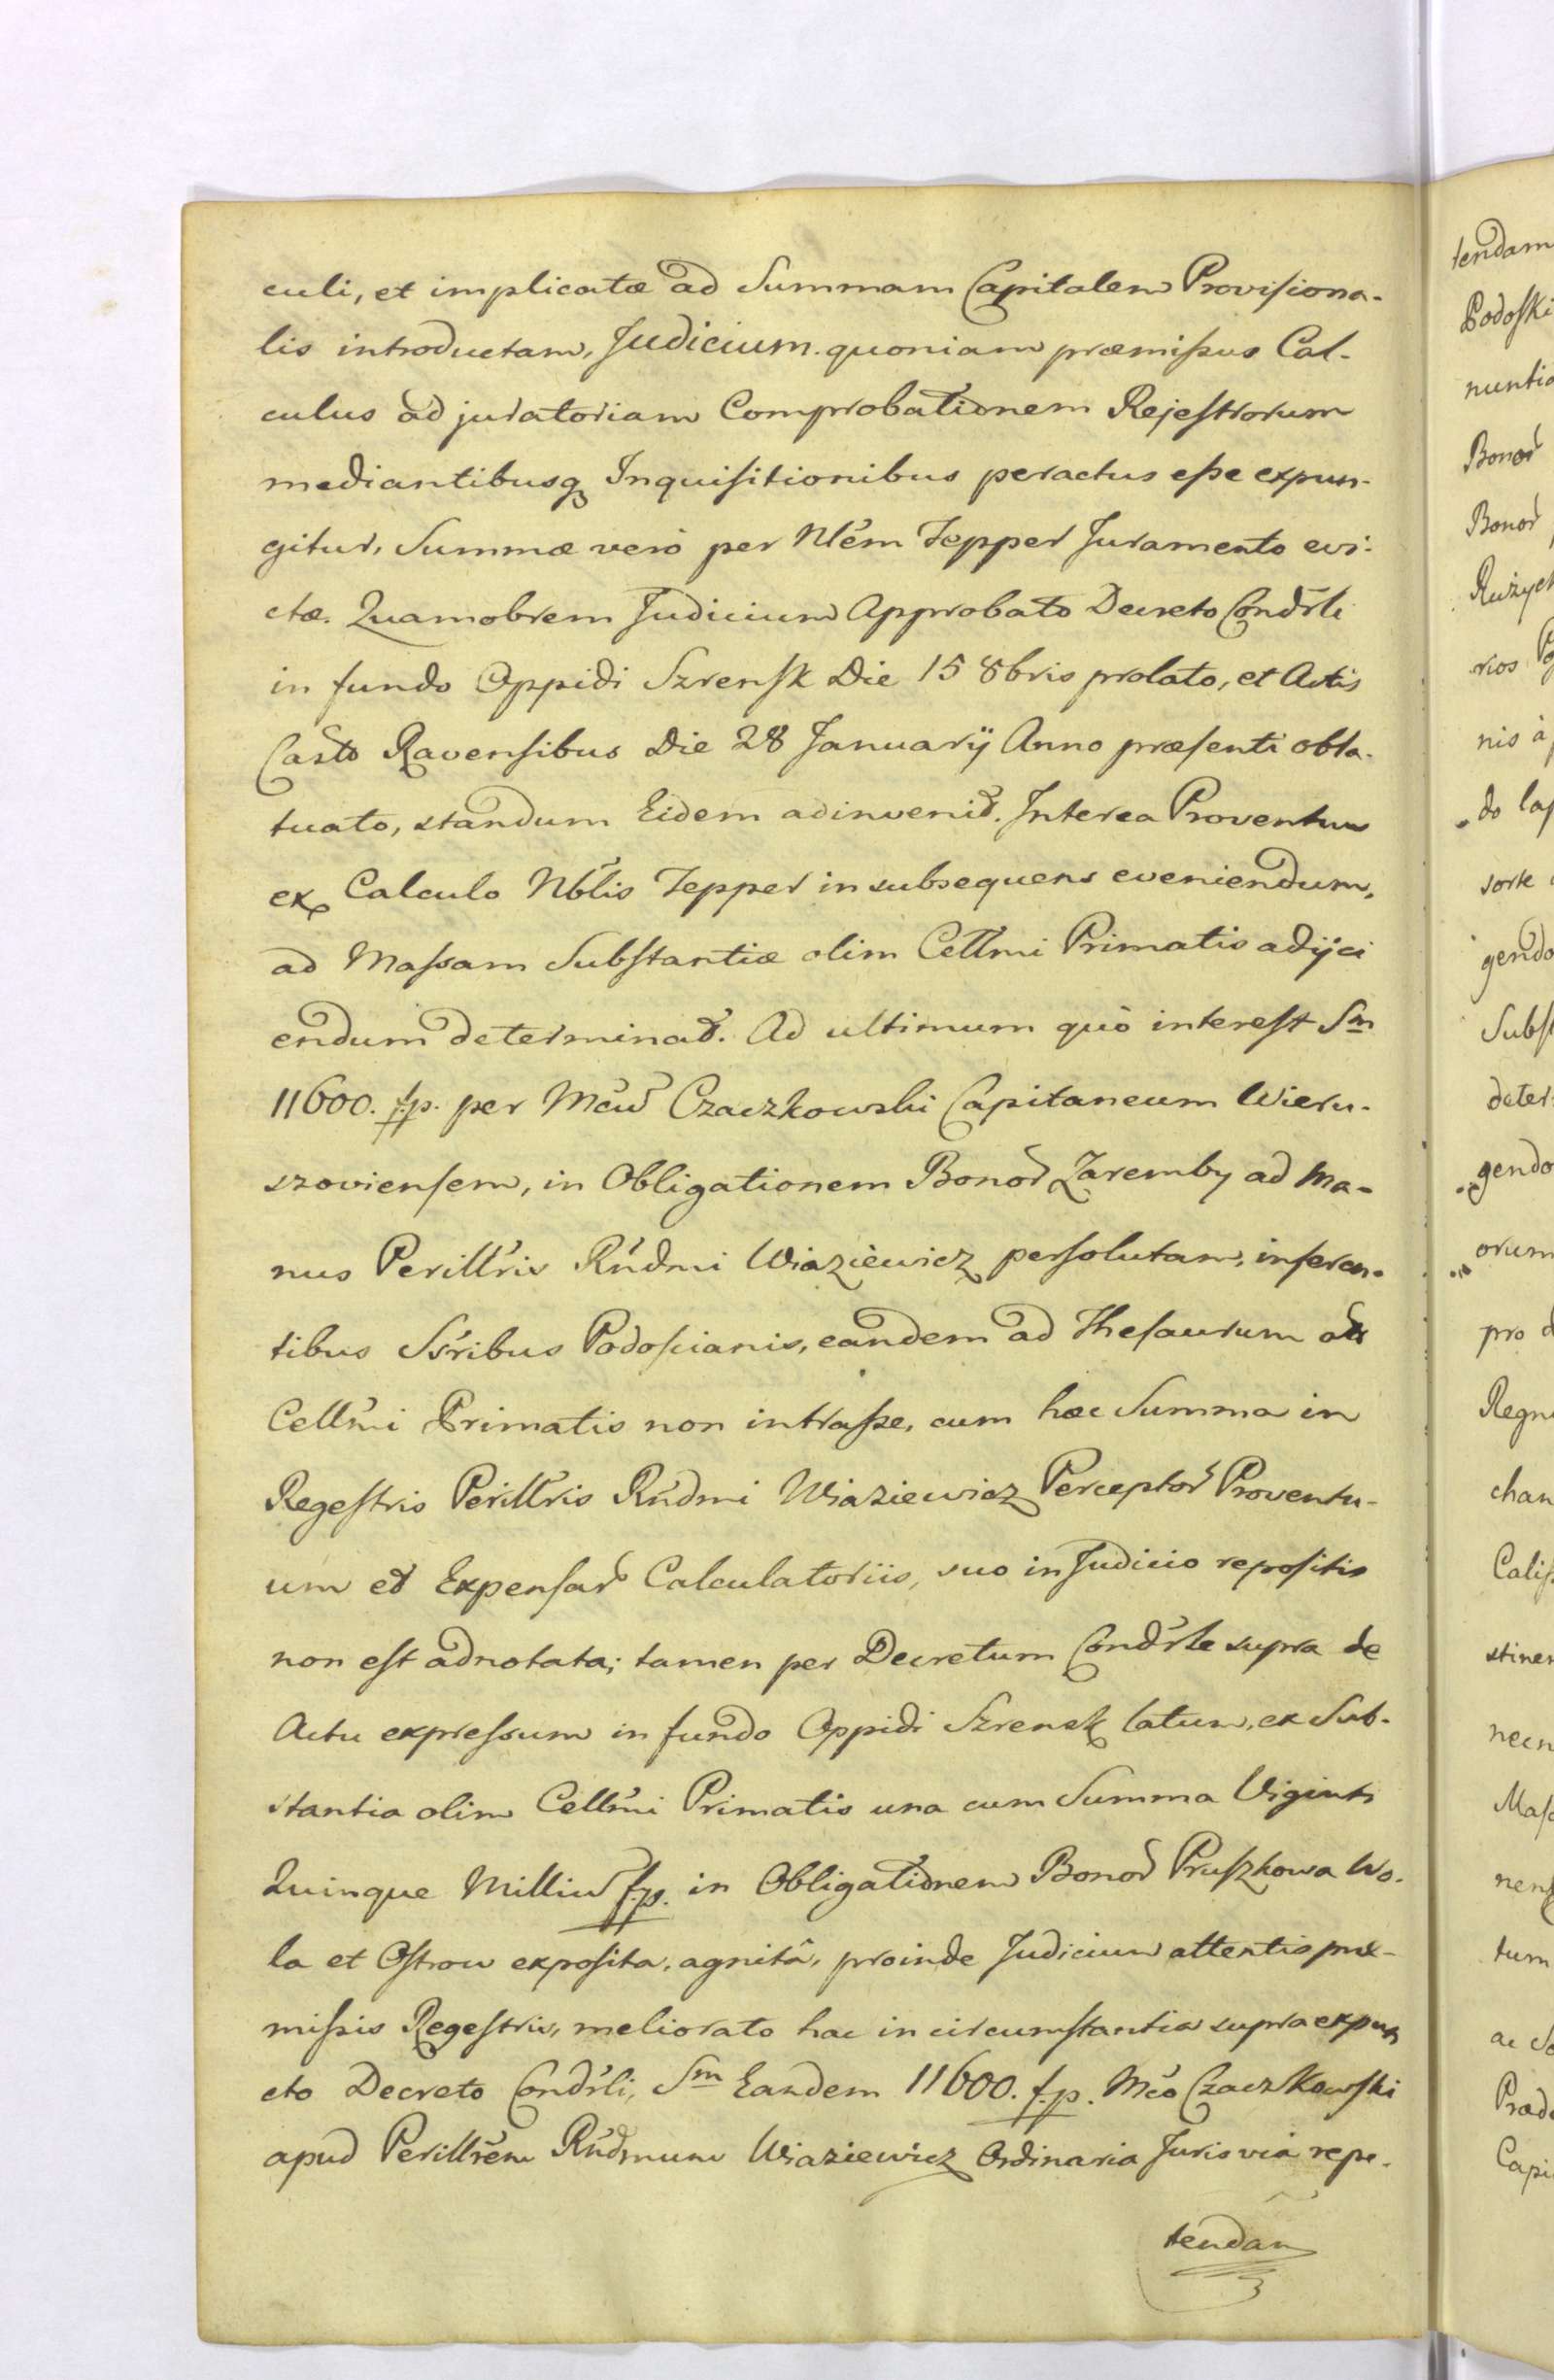 culi, et implicatæ ad Summam Capitalem Provisiona-
lis introductam, Judicium quoniam præmissus Cal-
culus ad juratoriam Comprobationem Rejestrorum
mediantibusq Inquisitionibus peractus esse expun-
gitur, Summæ verò per Nlẽm Tepper Juramento evi-
ctæ. Quamobrem Judicium Approbato Decreto Condrli
in fundo Oppidi Szrensk Die 15 8bris prolato, et Actis
Castr Ravensibus Die 28 Januarij Anno præsenti obla-
tuato, standum Eidem adinvenit. Interea Proventum
ex Calculo Nblis Tepper in subsequens eveniendum,
ad Massam Substantiæ olim Cellmi Primatis adijci
endum determinat. Ad ultimum quò interest Sm
11600. f.p. per Mcum Czaczkowski Capitaneum Wieru-
szoviensem, in Obligationem Bonor Zaremby ad ma-
nus Perillris Rndmi Wiaziewicz persolutam, inferen-
tibus Ssribus Podoscianis, eandem ad Thesaurum
Cellmi Primatis non intrasse, cum hæc Summa in
Regestris Perillris Rndmi Wiaziewicz Perceptor Proventu-
um et Expensar Calculatoriis, suo in Judicio repositis
non est adnotata; tamen per Decretum Condrle supra de
Actu expressum in fundo Oppidi Szrensk latum, ex Sub-
stantia olim Cellmi Primatis una cum Summa Viginti
Quinque Millium f.p. in Obligationem Bonor Pruszkowa Wo-
la et Ostrow exposita, agnitâ, proinde Judicium attentis præ-
missis Regestris, meliorato hac in circumstantia supra expun
cto Decreto Condrli, Sm Eandem 11600. f.p. Mco Czaczkowski
apud Perillrem Rndmum Wiaziewicz Ordinaria Juris via repe-
tendam
tendam
Podoski
nuntia
Bonor
Bonor
Rużyc
rios
nis à
do
sorte
gendo
Subs
deter
gendo
orum
pro
Regn
chan
Calis
stiner
necn
Mas
nens
tum
ac
Præd
Capi